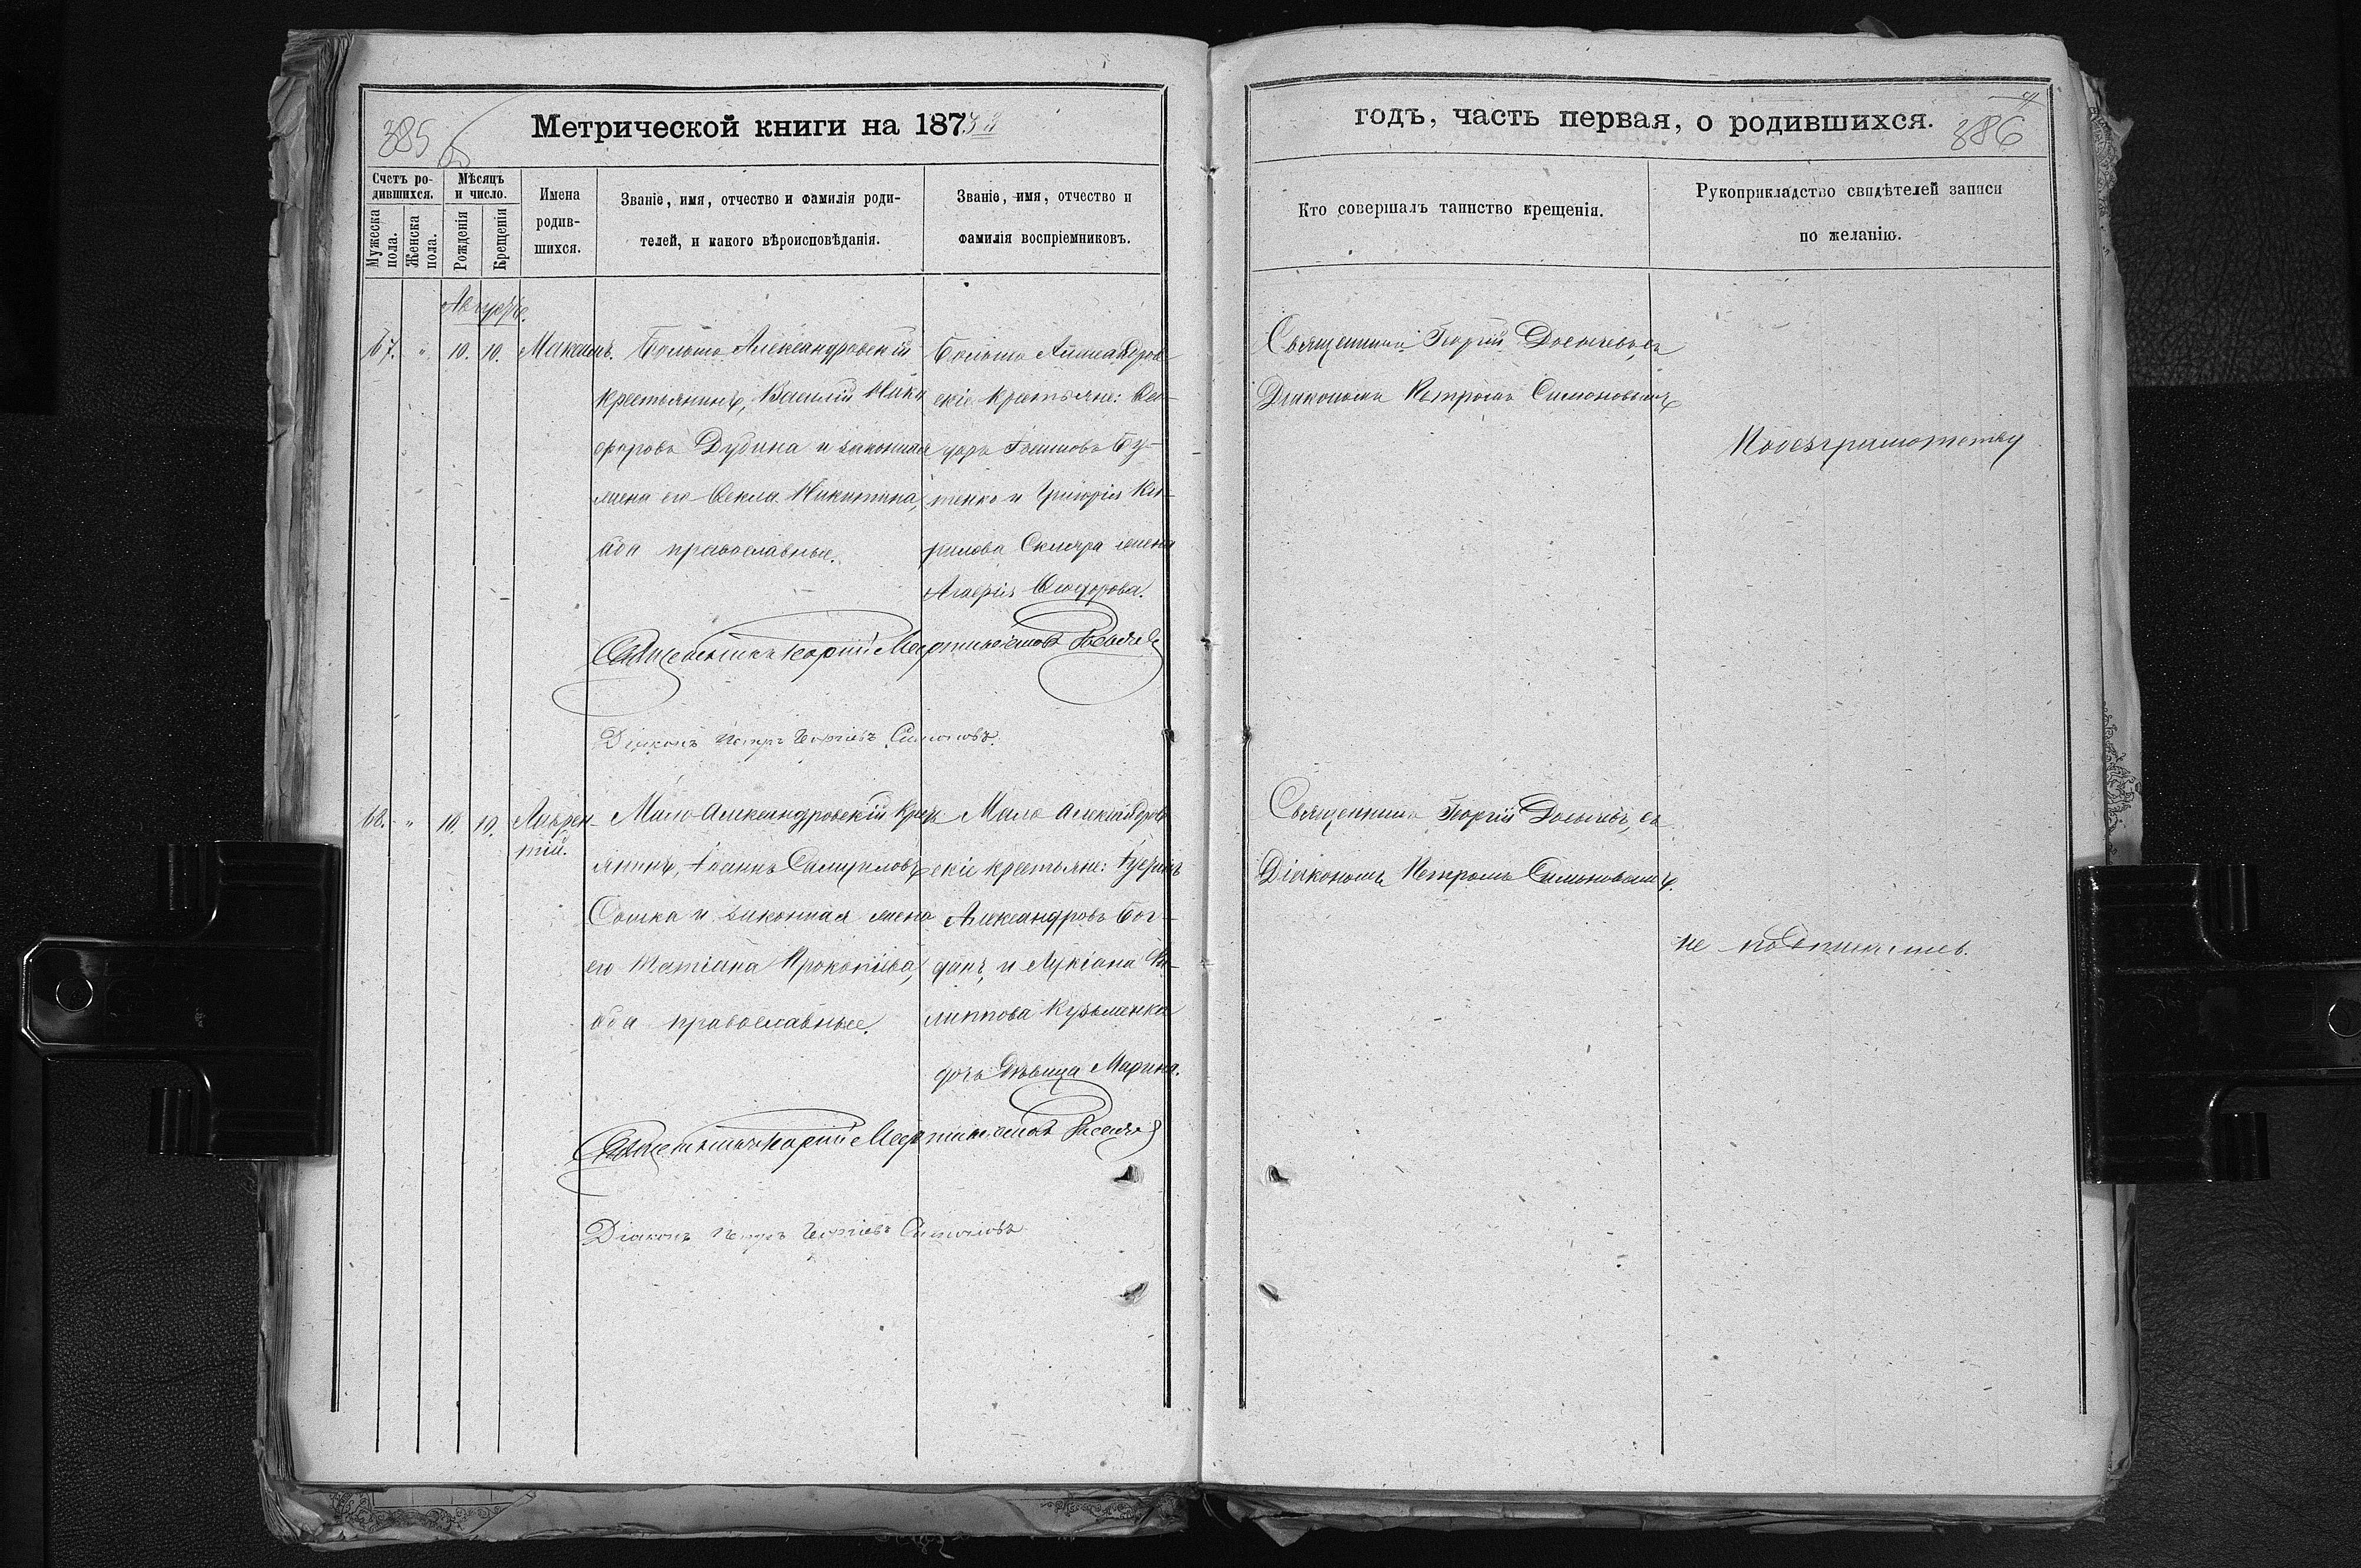 385
Метрической книги на 1873
Счетъ ро-
дившихся.
Мужеска
пола.
Женска
пола.
Мѣсяцъ
и число.
Рожденія
Крещенія
Имена
родив-
шихся.
Званіе, имя, отчество и фамилія роди-
телей, и какого вѣроисповѣданія.
Званіе, имя, отчество и
фамилія воспріемниковъ.
Августъ.
67. " 10. 10. Максимъ.
Больше Александровскій
крестьянинъ, Василій Ники
форовъ Дубина и законная
жена его Ѳекла Никитина,
оба православные.
Больше Александров-
скіе крестьяне: Ѳео-
доръ Бу-
тенко и Григорія Ки-
рилова Скляра жена
Ѳеодорова.
Священникъ Георгій
Діаконъ Петръ Георгіевъ Симоновъ.
68. " 10. 10. Лаврен-
тій.
Мало-Александровскій крест
янинъ, Іоаннъ Самуиловъ
Сошка и законная жена
его Татіана Прокопіева,
оба православные.
Мало Александров
скіе крестьяне:
Александровъ Бог-
данъ, и Лукіана Фи-
липпова Кузьменка
дочь дѣвица Марина.
Священникъ Георгій
Діаконъ Петръ Георгіевъ Симоновъ
годъ, часть первая, о родившихся.
386
Кто совершалъ таинство крещенія.
Рукоприкладство свидѣтелей записи
по желанію.
Священникъ Георгій съ
Діакономъ Петромъ Симоновымъ
По безграмотству
Священникъ Георгій съ
Діакономъ Петромъ Симоновымъ.
не подписались.